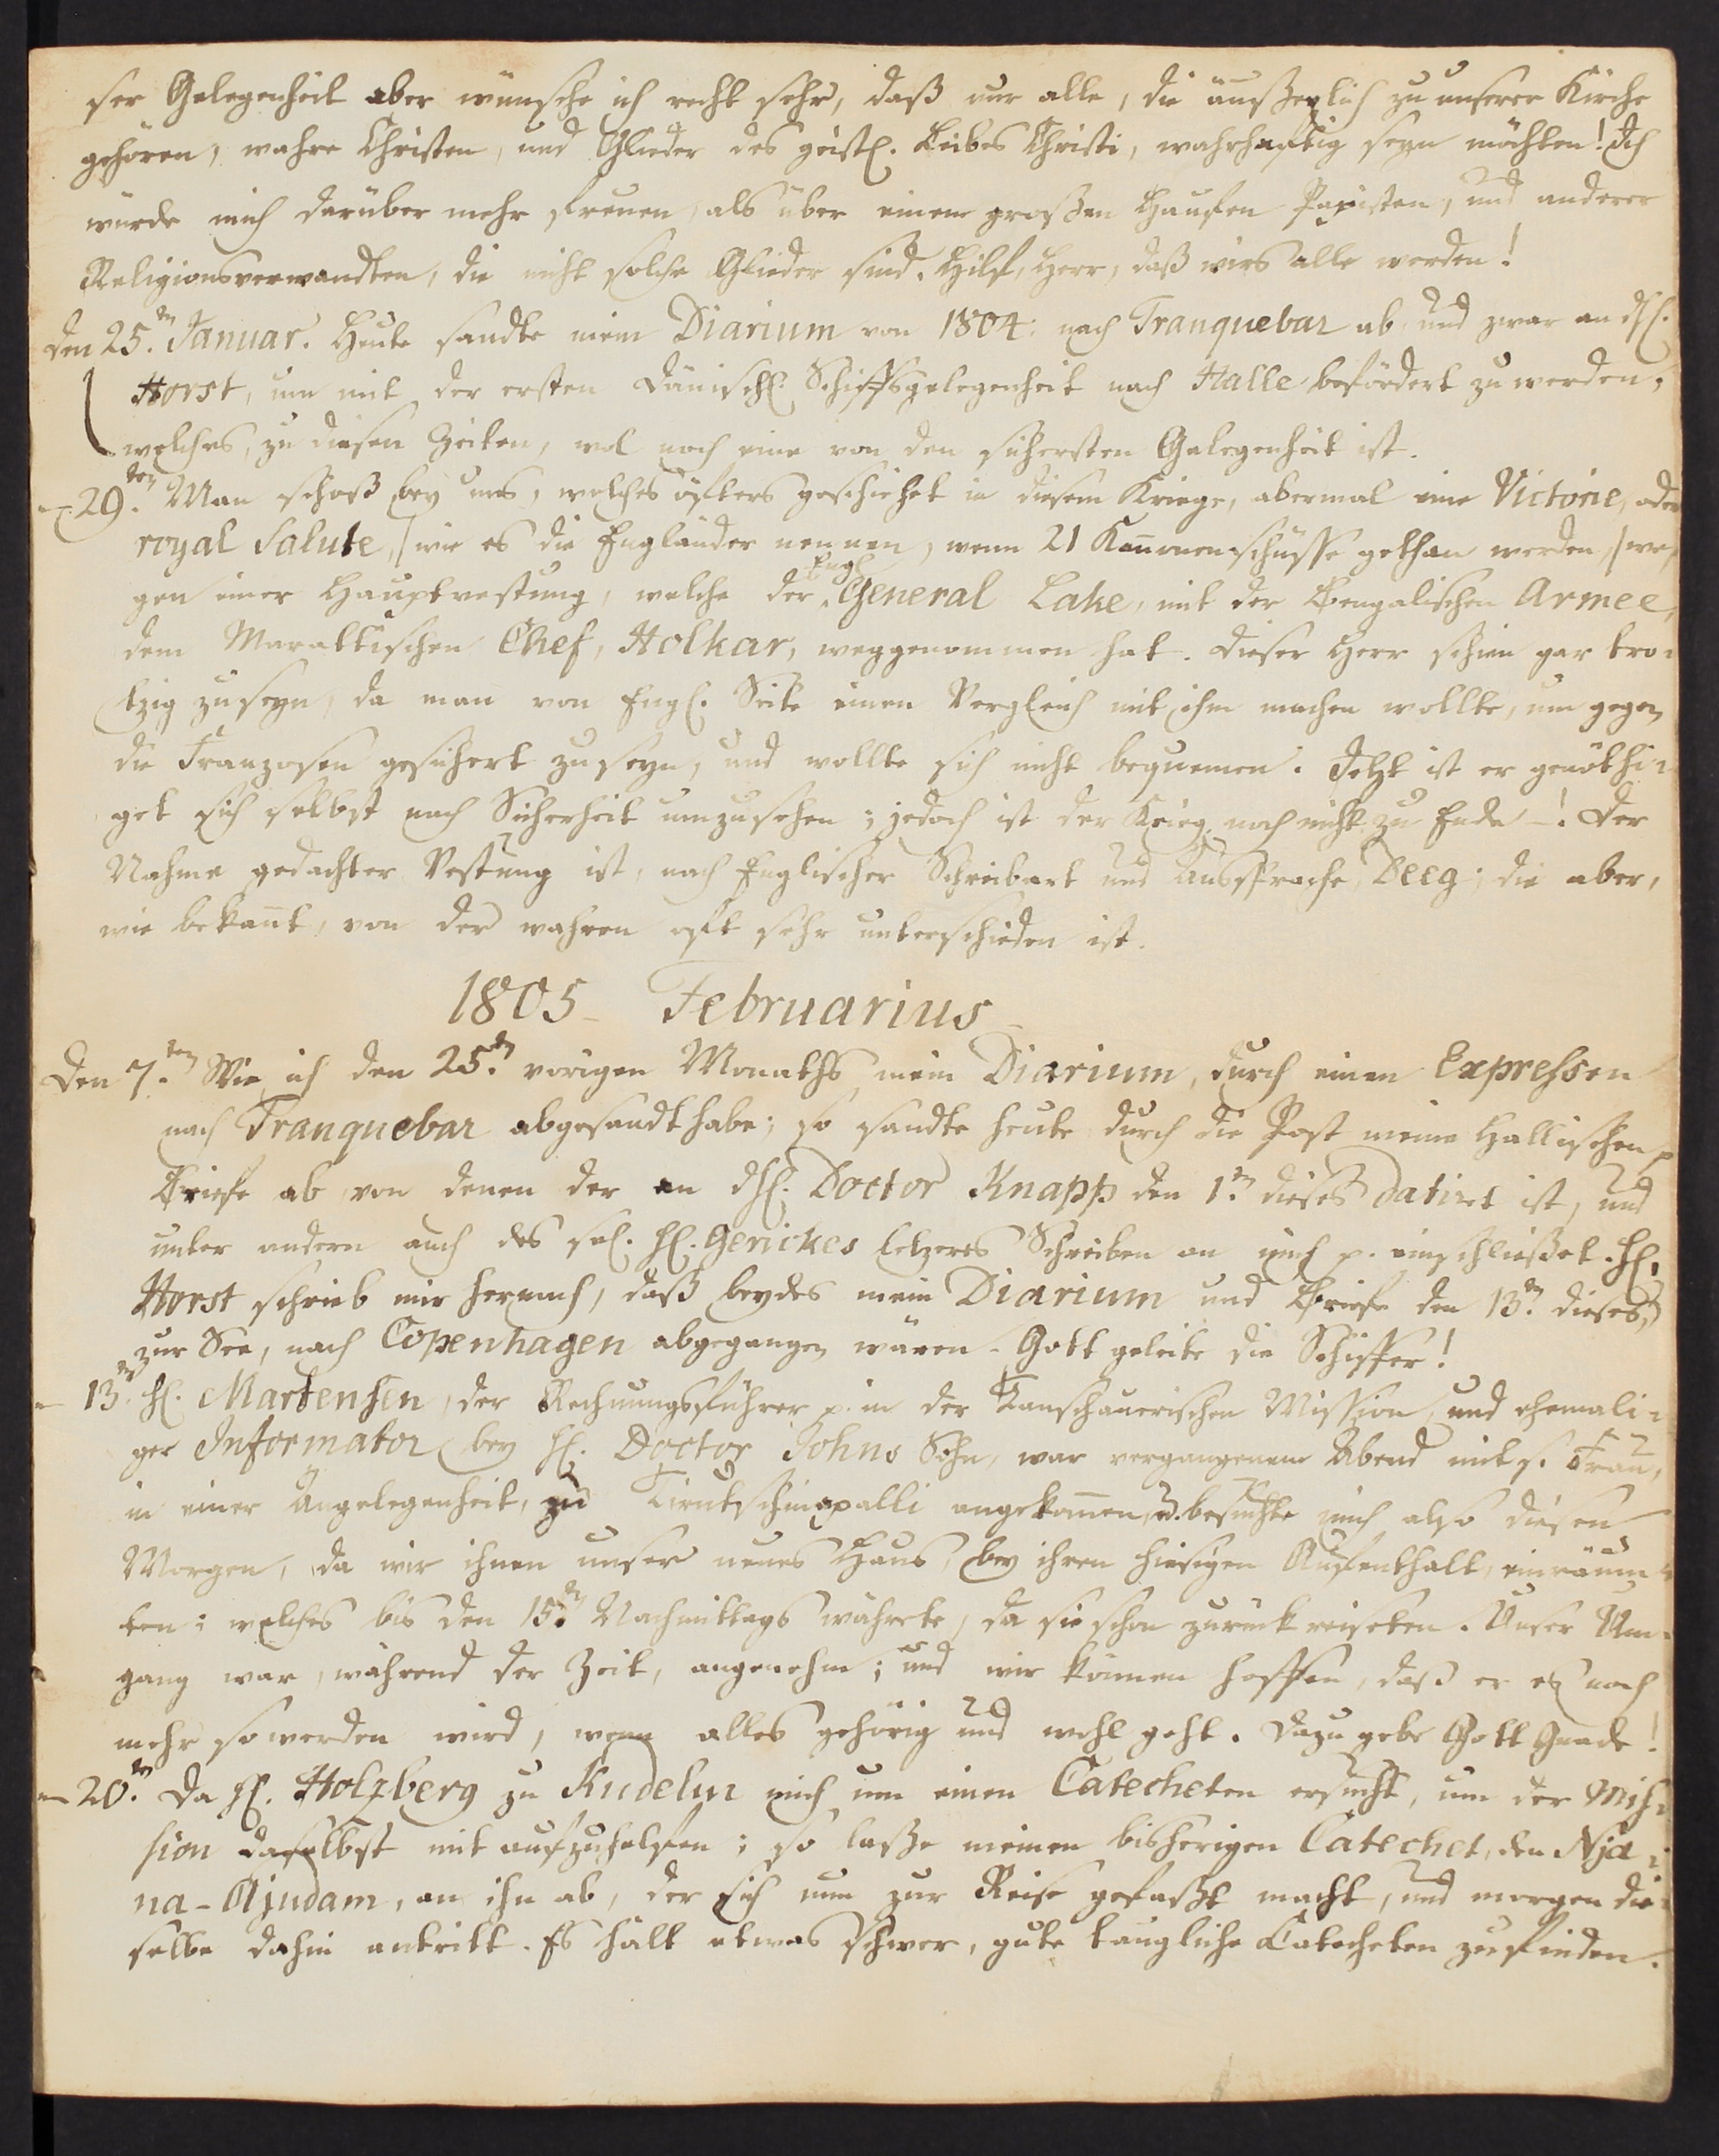 ser Gelegenheit aber wünsche ich recht sehr, daß nur alle, die äußerlich zu unserer Kirche
gehören, wahre Christen, und Glieder des geistl. Leibes Christi, wahrhaftig seyn möchten! Ich
würde mich darüber mehr freuen, als über einen großen Haufen Papisten, und anderer
Religionsverwandten, die nicht solche Glieder sind. Hilf, Herr, daß wirs alle werden!
den 25.ten Januar. Heute sandte mein Diarium von 1804. nach Tranquebar ab, und zwar an H.
Horst, um mit der ersten Dänischen Schiffsgelegenheit nach Halle befördert zu werden,
welches, zu diesen Zeiten, wol noch eine von den sichersten Gelegenheit ist.
- 29.ten Man schoß bey uns, welches öfters geschiehet in diesem Kriege, abermal eine Victorie, oder
royal Salute, /wie es die Engländer nennen, wenn 21 Kanonenschüsse gethan werden,/ we-
gen einer Hauptvestung, welche der Engl. General Lake, mit der Bengalischen Armee,
dem Marattischen Chef, Holkar, weggenommen hat. Dieser Herr schien gar tro-
tzig zu seyn, da man von Engl. Seite einen Vergleich mit ihm machen wollte, um gegen
die Franzosen gesichert zu seyn, und wollte sich nicht bequemen. Jetzt ist er genöthi-
get sich selbst nach Sicherheit umzusehen; jedoch ist der Krieg noch nicht zu Ende -! Der
Nahme gedachter Vestung ist, nach Englischer Schreibart und Aussprache, Deeg; die aber,
wie bekant, von der wahren oft sehr unterschieden ist.
1805 - Februarius
Den 7.ten Wie ich den 25.ten vorigen Monaths mein Diarium, durch einen Expressen
nach Tranquebar abgesandt habe; so sandte heute durch die Post meine Hallischen p
Briefe ab, von denen der an H. Doctor Knapp den 1.ten dieses datirt ist, und
unter andern auch des sel. H. Gerickes letzeres Schreiben an mich p. einschließet. H.
Horst schrieb mir hernach, daß beydes mein Diarium und Briefe den 13.ten dieses,
zur See, nach Copenhagen abgegangen wären - Gott geleite die Schiffer!
- 13.ten H. Martensen, der Rechnungsführer p. in der Tanschauerischen Mission, und ehemali-
ger Informator bey H. Doctor Johns Sohn, war vergangenen Abend mit s. Frau,
in einer Angelegenheit, zu Tirutschinapalli angekommen, u. besuchte mich also diesen
Morgen, da wir ihnen unser neues Haus, bey ihren hiesigen Aufenthalt, einräum-
ten; welches bis den 15.ten Nachmittags währete, da sie schon zurück reiseten. Unser Um-
gang war, während der Zeit, angenehm; und wir können hoffen, daß er es noch
mehr so werden wird, wenn alles gehörig und wohl geht. Dazu gebe Gott Gnade!
- 20.ten Da H. Holzberg zu Kudelur mich um einen Catecheten ersucht, um der Mis-
sion daselbst mit aufzuhelfen; so laße meinen bisherigen Catechet, den Nja-
na-Ajudam, an ihn ab, der sich nun zur Reise gefaßt macht, und morgen die-
selbe dahin antritt. Es hält etwas schwer, gute taugliche Catecheten zu finden.